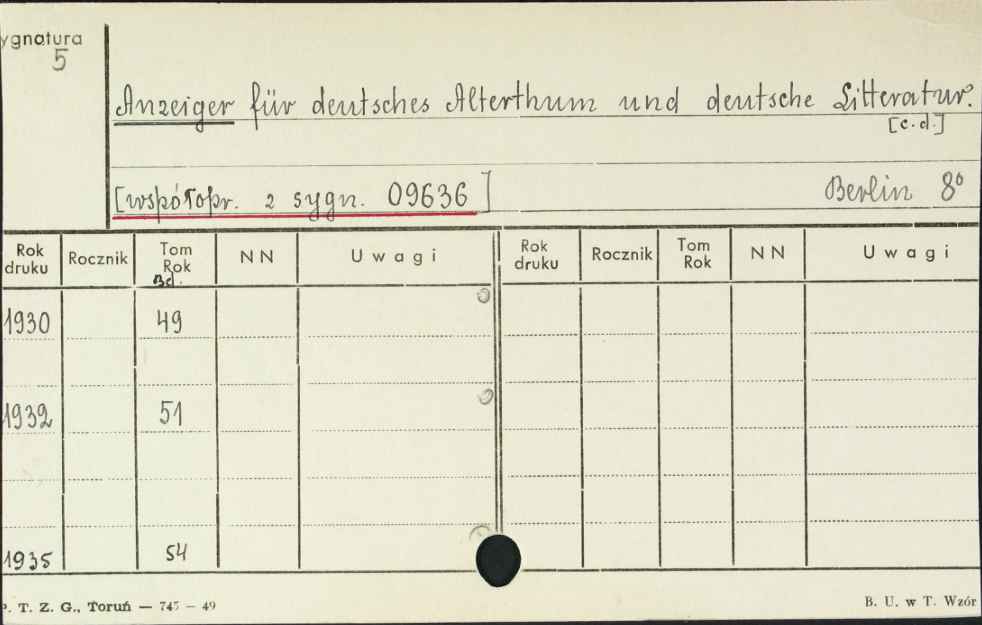 ygnatura
5
Anzeiger für deutsches Alterthum und deutsche Litteratur.
[c.d.]
[współopr. z sygn. 09636]
Berlin 8°
Rok druku Rocznik Tom Rok Bd. NN Uwagi Rok druku Rocznik Tom Rok NN Uwagi
1930 49
1932 51
1935 54
P. T. Z. G., Toruń — 745 — 49
B. U. w T. Wzór